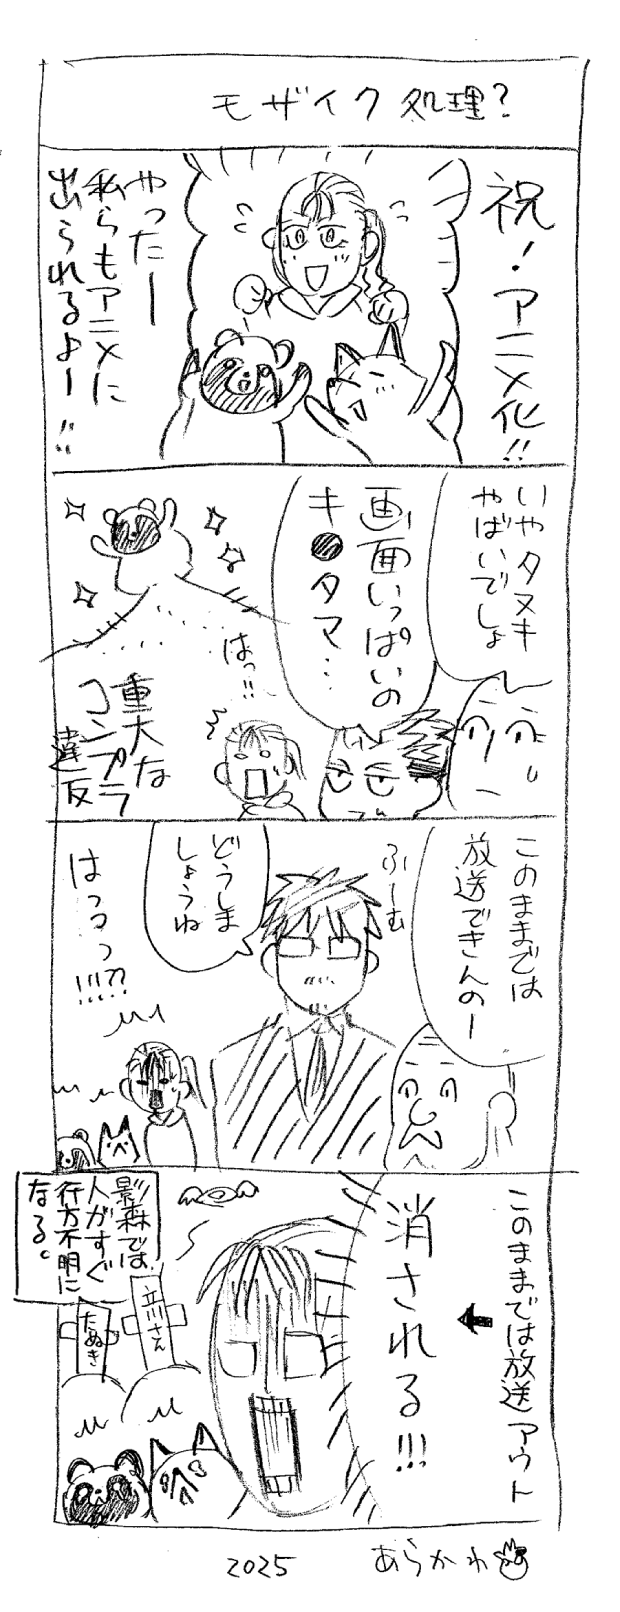 モザイク処理?
祝!アニメ化!!
やったー
私らもアニメに
出られるよー!!
いやタヌキ
やばいでしょ
画面いっぱいの
キ●タマ…
はっ!!
重大な
コンプラ
違反
このままでは
放送できんのー
ふーむ
どうしま
しょうね
はうっ!!!??
このままでは放送アウト
消される!!!
影森では
人がすぐ
行方不明に
なる。
立川さん
たぬき
2025
あらかわ